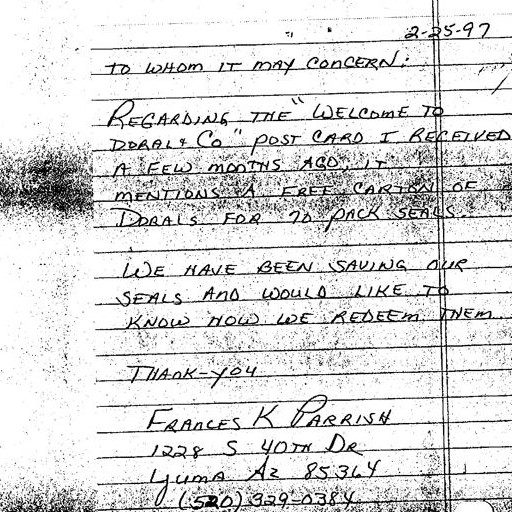 2-25-97
TO WHOM IT MAY CONCERN:
REGARDING THE "WELCOME TO
DORAL & CO" POST CARD I RECEIVED
A FEW MONTHS AGO, IT
MENTIONS A FREE CARTON OF
DORALS FOR 70 PACK SEALS.
WE HAVE BEEN SAVING OUR
SEALS AND WOULD LIKE TO
KNOW HOW WE REDEEM THEM
THANK-YOU
FRANCES K PARRISH
1228 S 40TH DR
YUMA AZ 85364
(520) 329-0384